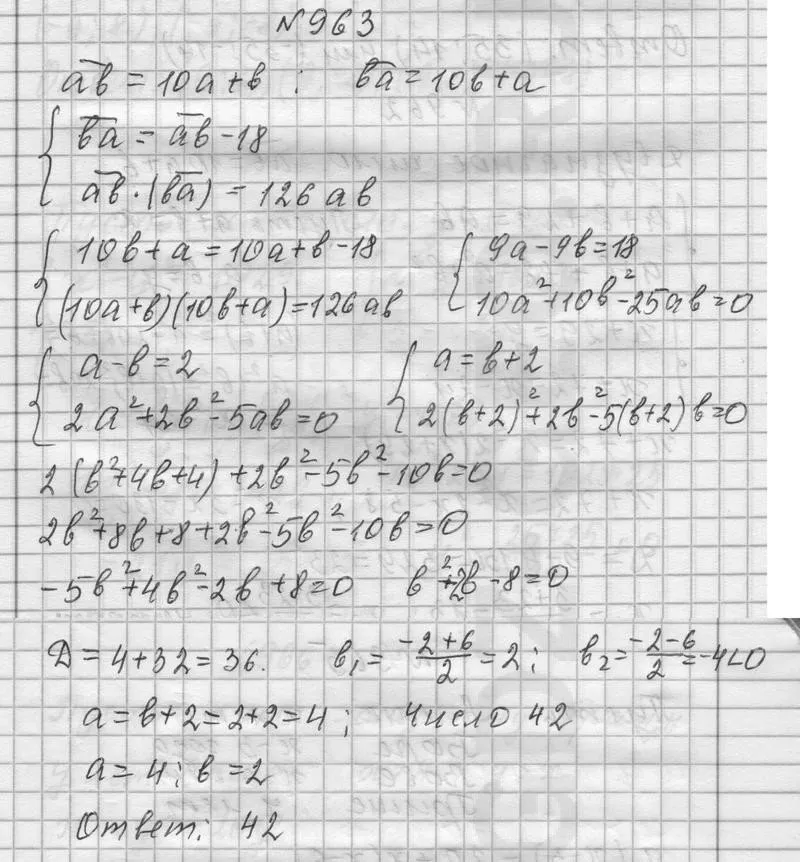 №963
a̅b̅ = 10a+b ; b̅a̅ = 10b+a
{ b̅a̅ = a̅b̅ - 18
a̅b̅ · (b̅a̅) = 126ab
{ 10b+a = 10a+b-18 { 9a-9b=18
(10a+b)(10b+a)=126ab 10a²+10b²-25ab=0
{ a-b=2 { a=b+2
2a²+2b²-5ab=0 2(b+2)²+2b²-5(b+2)b=0
2(b²+4b+4)+2b²-5b²-10b=0
2b²+8b+8+2b²-5b²-10b=0
-5b²+4b²-2b+8=0 b²+2b-8=0
D=4+32=36. b₁=(-2+6)/2=2; b₂=(-2-6)/2=-4<0
a=b+2=2+2=4; число 42
a=4; b=2
Ответ: 42